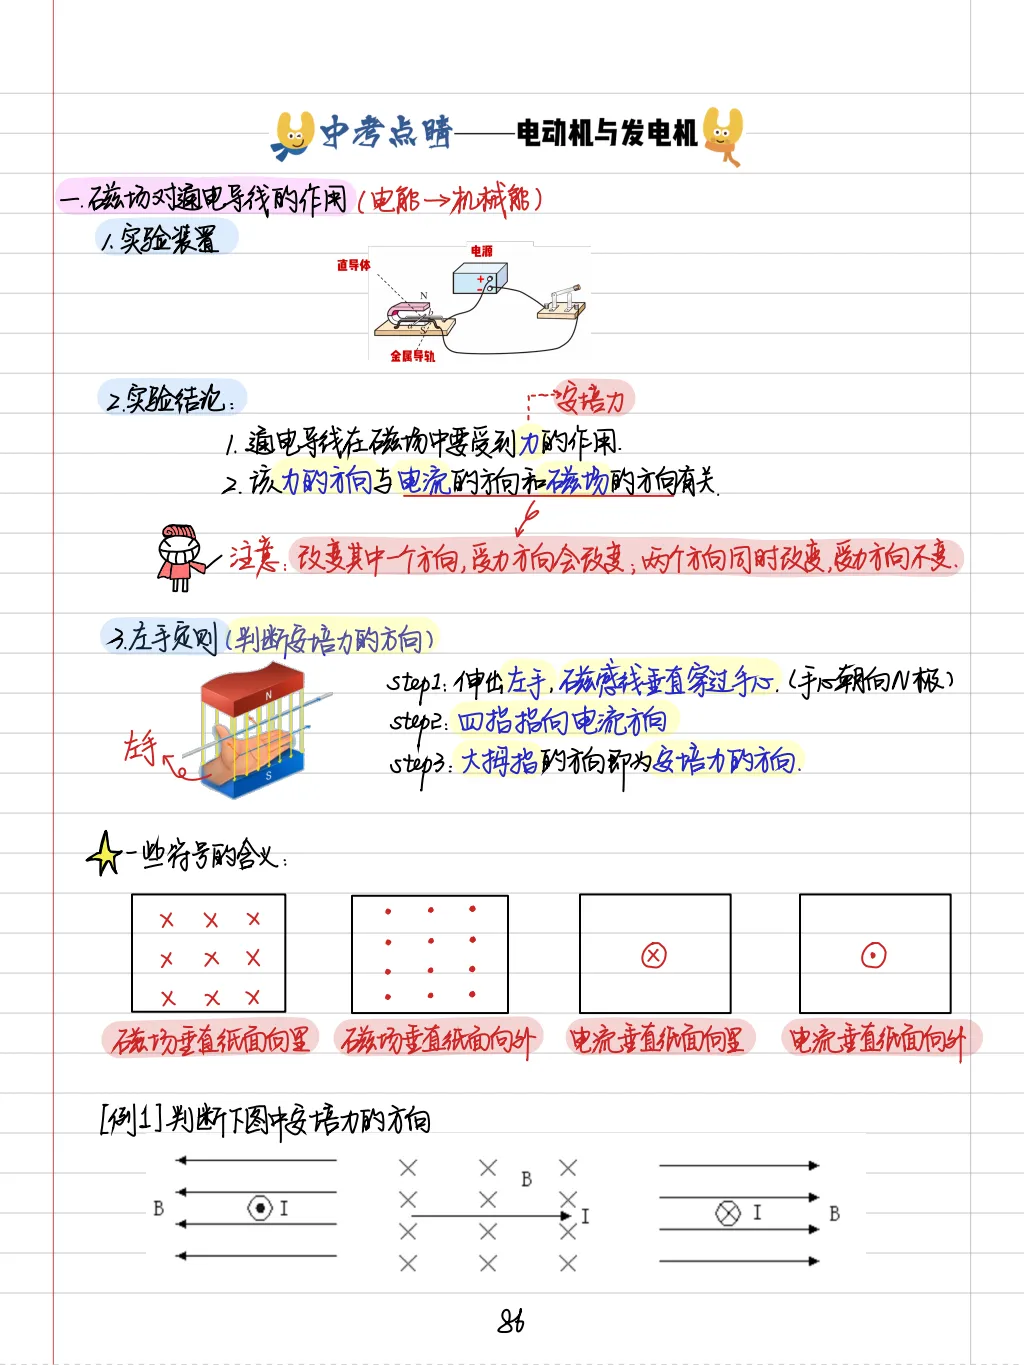 中考点睛——电动机与发电机
一.磁场对通电导线的作用(电能→机械能)
1.实验装置
电源
直导体
N
+
-
a
b
S
金属导轨
2.实验结论:
安培力
1.通电导线在磁场中要受到力的作用.
2.该力的方向与电流的方向和磁场的方向有关.
注意:改变其中一个方向,受力方向会改变;两个方向同时改变,受力方向不变.
3.左手定则(判断安培力的方向)
step1:伸出左手,磁感线垂直穿过手心.(手心朝向N极)
step2:四指指向电流方向
step3:大拇指的方向即为安培力的方向.
N
左手
S
一些符号的含义:
磁场垂直纸面向里 磁场垂直纸面向外 电流垂直纸面向里 电流垂直纸面向外
[例1]判断下图中安培力的方向
B I B I I B
86